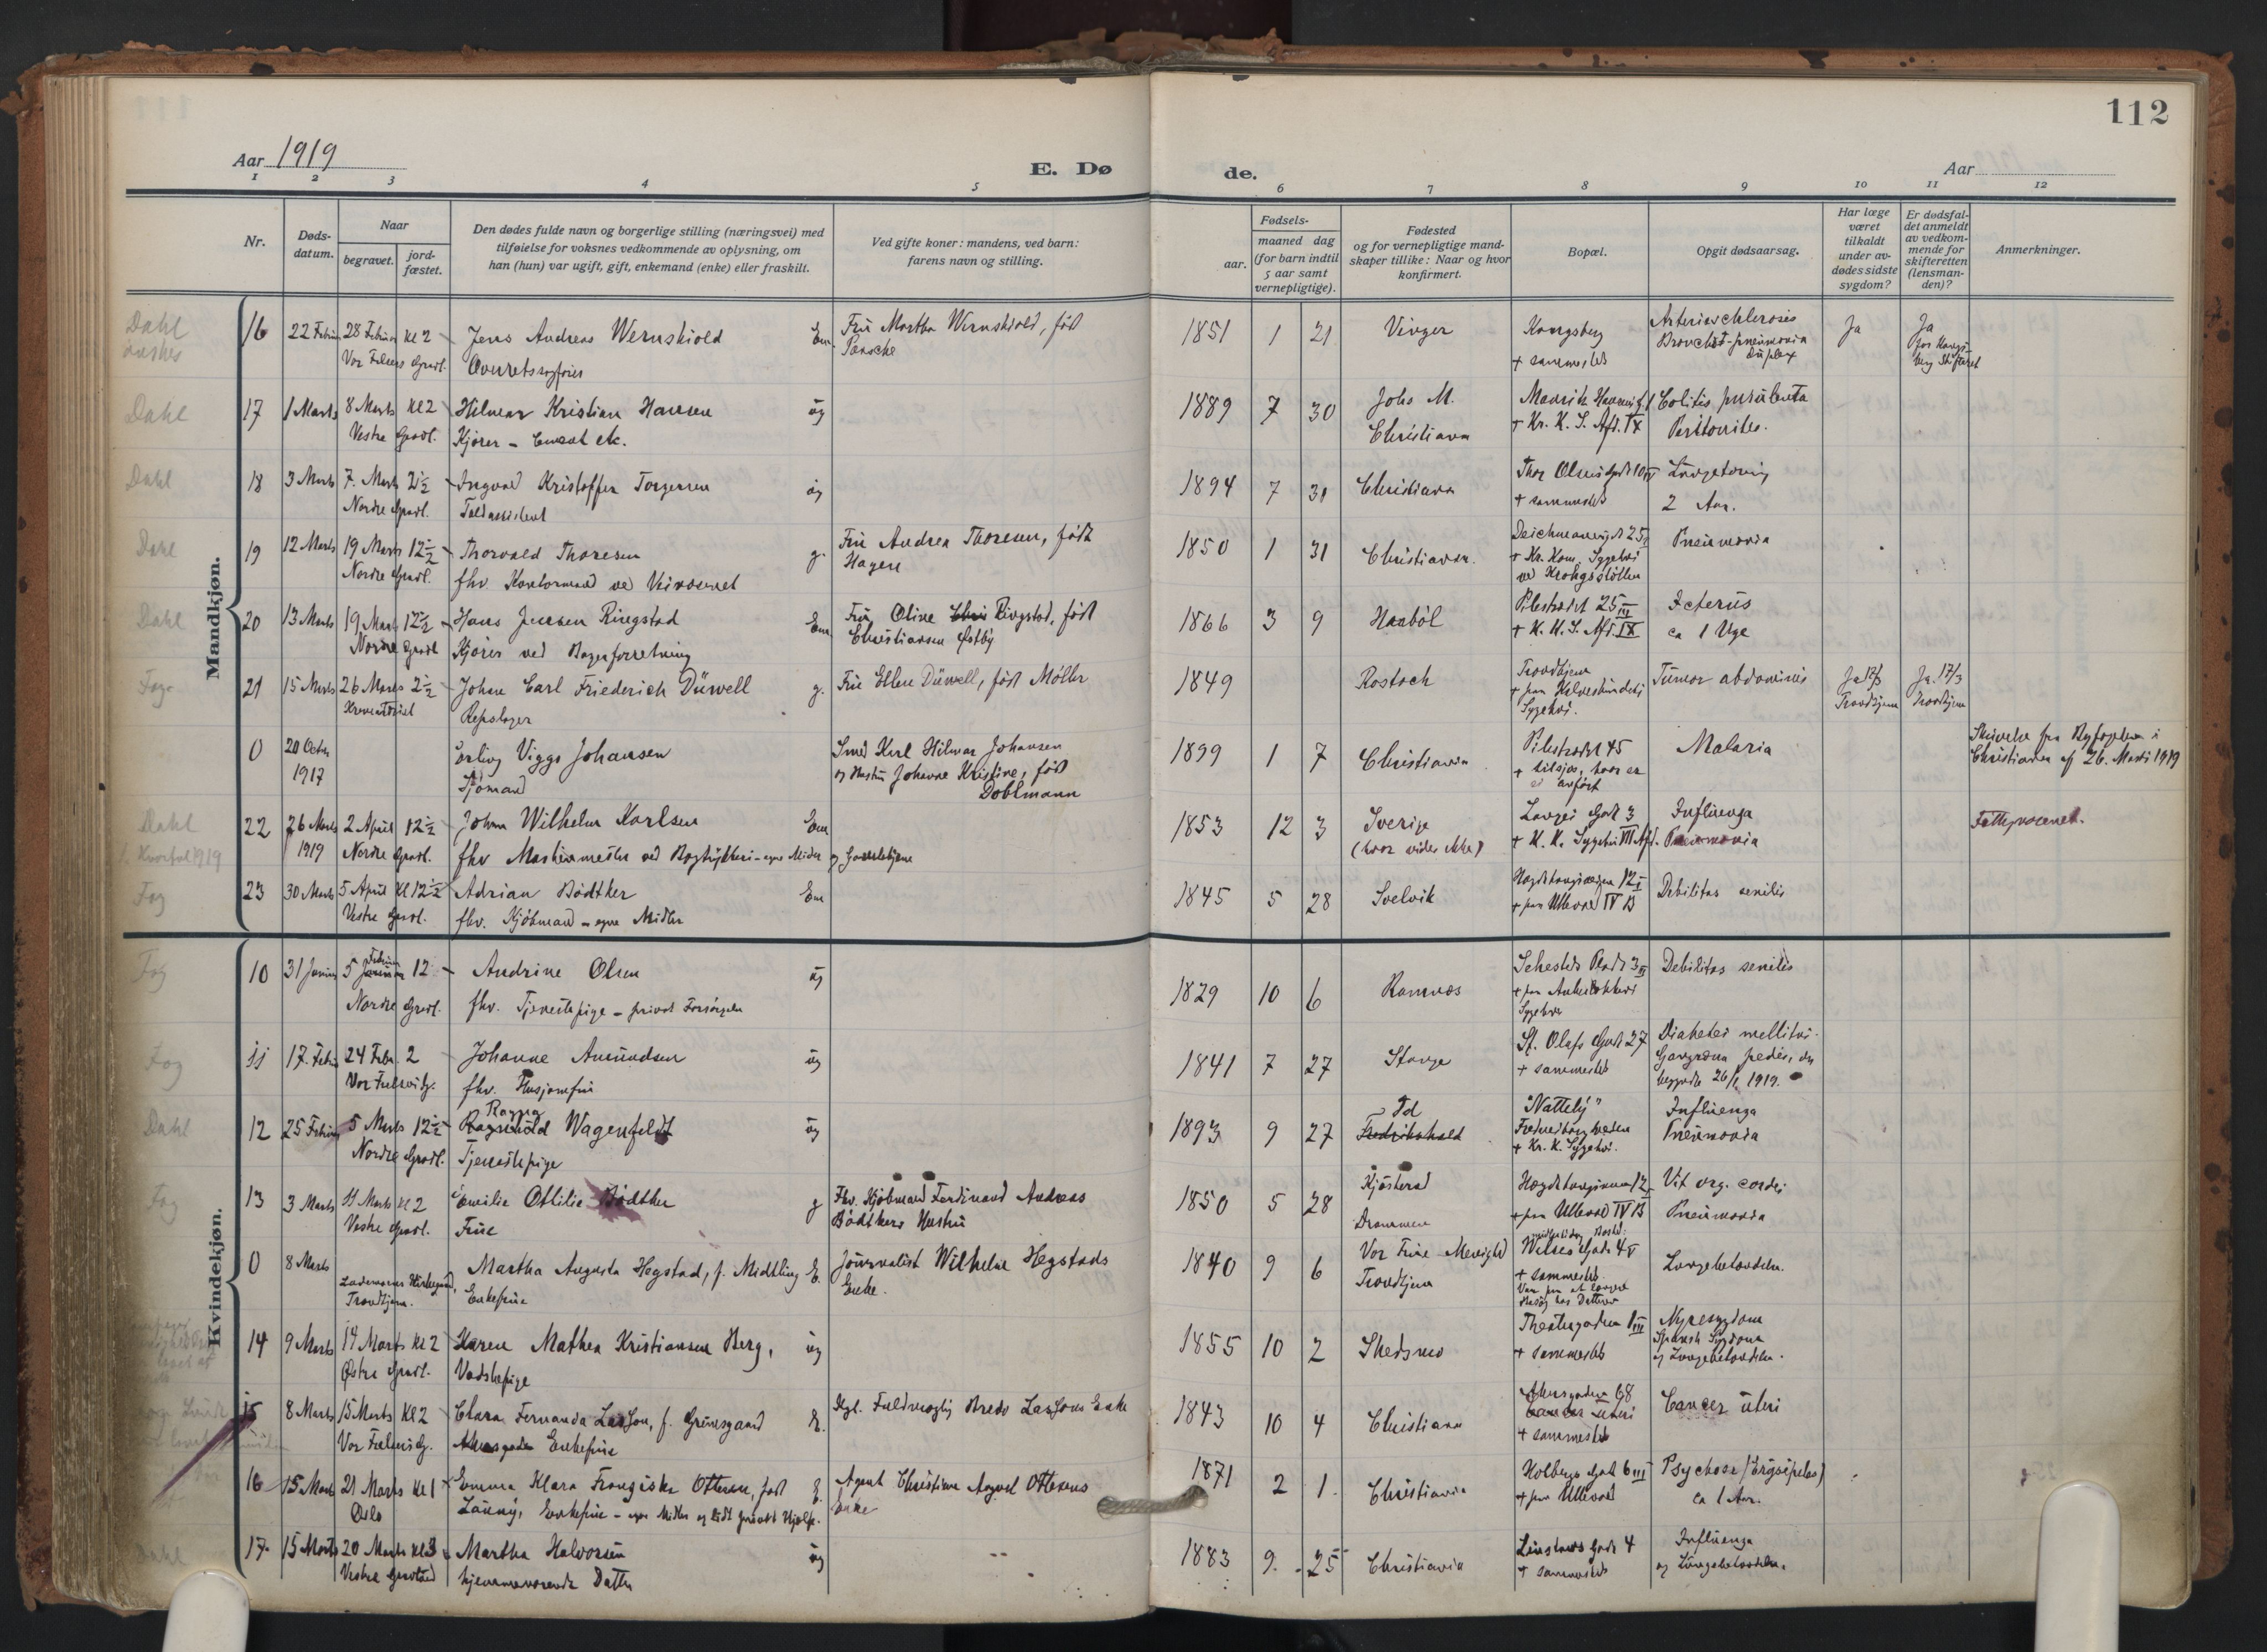 112
Aar 1919
E. Døde.
Aar
1 2 3 4 5 6 7 8 9 10 11 12
Nr.
Døds-
datum.
Naar
begravet.
jord-
fæstet.
Den dødes fulde navn og borgerlige stilling (næringsvei) med
tilføielse for voksnes vedkommende av oplysning, om
han (hun) var ugift, gift, enkemand (enke) eller fraskilt.
Ved gifte koner: mandens, ved barn:
farens navn og stilling.
Fødsels-
aar.
maaned dag
(for barn indtil
5 aar samt
vernepligtige).
Fødested
og for vernepligtige mand-
skaper tillike: Naar og hvor
konfirmert.
Bopæl.
Opgit dødsaarsag.
Har læge
været
tilkaldt
under av-
dødes sidste
sygdom?
Er dødsfal-
det anmeldt
av vedkom-
mende for
skifteretten
(lensman-
den)?
Anmerkninger.
Mandkjøn.
Dahl
16 22 Februar 28 Februar Kl 2 Jens Andreas Wernskiold Em. Fru Martha Wernskiold, født 1851 1 21 Vinger Kongsberg Arteriaschlerosis Ja Ja
Vor Frelsers Gravl. Overretssagfører Paasche + sammesteds Bronchit-pneumonia
duplex
Dahl 17 1 Marts 8 Marts Kl 2 Hilmar Kristian Hansen ug 1889 7 30 Johs M. Colitis purulenta
Vestre Gravl. Kjører - Enset etc. Christiania + Kr. K. S. Afd. IX Peritonites.
Dahl 18 3 Marts 7. Marts 2 1/2 Ingvald Kristoffer Torgersen ug 1894 7 31 Christiania Thor Olsens Gade 10 IV Lungetæring
Nordre Gravl. Toldassistent + sammesteds 2 Aar.
Dahl 19 12 Marts 19 Marts 12 1/2 Thorvald Thoresen g. Fru Andrea Thoresen, født 1850 1 31 Christiania. Deichmansgt 25 Pneumonia
Nordre Gravl. fhv. Kontormand ved Veivæsenet Hagen + Kr. Kom. Sygehus
ved Krohgsstøtten
Dahl 20 13 Marts 19 Marts 12 1/2 Hans Jensen Ringstad Em Fru Oline Ringstad, født 1866 3 9 Haabøl Pilestrædet 25 III Icterus
Nordre Gravl Kjører ved Christiansen Østby + K. K. S. Afd. IX ca 1 Uge
21 15 Marts 26 Marts 2 1/2 Johan Carl Friederich Düwell g. Fru Ellen Düwell, født Møller 1849 Rostock Trondhjem Tumor abdominis Ja 17/3 Ja. 17/3
Krematoriet Repslager Sygehus. Trondhjem Trondhjem
0 20 Octbr 1917 Erling Viggo Johansen Smed Karl Hilmar Johansen 1899 1 7 Christiania Pilestrædet 45 Malaria Skrivelse fra Byfogden i
Sjømand og Hustru Johanne Kristine, født + tilsjøs, hvor er Christiania af 26. Marts 1919
Doblmann
Dahl 22 26 Marts 2 April 12 1/2 Johan Wilhelm Karlsen Em 1853 12 3 Sverige Langes Gade 3 Influenza Fattigvæsenet.
1919 Nordre Gravl. fhv Maskinmester ved Bogtrykkeri - egne Midler og Gamlehjem (hvor vides ikke) + K. K. Sygehus VII Afd. Pneumonia
23 30 Marts 5 April Kl 12 1/2 Adrian Bødtker Em 1845 5 28 Svelvik Debilitas senilis
Vestre Gravl. fhv. Kjøbmand - egne Midler + paa Ullevaal IV B
Kvindekjøn.
10 31 Januar 5 Februar 12 Andrine Olsen ug 1829 10 6 Ramnæs Sehesteds Plads 3 III Debilitas senilis
Nordre Gravl. fhv. Tjenestepige - privat Forsørgelse Sygehus
11 17. Febr 24 Febr. 2 Johanne Amundsen ug 1841 7 27 Stange St. Olafs Gade 27 Diabetes mellitus.
Vor Frelsers Gr. fhv. Husjomfru + sammesteds Gangræna pedis,
begyndte 26/1 1919.
Dahl 12 25 Februar 5 Marts 12 1/2 Ragnhild Ragna Wagenfeldt ug 1893 9 27 Fredrikshald Id "Nattely" Influenza
Nordre Gravl. Tjenestepige Fredriksborgveien Pneumonia
+ Kr. K. Sygehus.
13 3 Marts 11 Marts Kl 2 Emilie Ottilie Bødtker g Fhv. Kjøbmand Ferdinand Andreas 1850 5 28 Vit. org. cordis
Vestre Gravl. Frue Bødtkers Hustru Drammen + paa Ullevaal IV B Pneumonia
0 8 Marts Martha Augusta Hegstad, f. Midtling E. Journalist Wilhelm Hegstads 1840 9 6 Vor Frue Menighed Wilses Gade 4 V Lungebetændelse.
Lademoens Kirkegaard, Trondhjem. Enkefrue Enke. Trondhjem + sammesteds.
Besøg hos Datter
14 9 Marts 14 Marts Kl 2 Karen Mathea Kristiansen Berg, ug 1855 10 2 Skedsmo Theatergaden 1 III Nyresygdom
Østre Gravl. Vadskepige + sammesteds Spansk Sygdom
og Lungebetændelse.
15 8 Marts 15 Marts Kl 2 Clara Fernanda Lasson, f. Grimsgaard E. Kgl. Fuldmægtig Bredo Lassons Enke 1843 10 4 Christiania Akersgaden 68 Cancer uteri
Vor Frelsers Gr. Akersgaden Enkefrue Cancer uteri
+ sammesteds
16 15 Marts 21 Marts Kl 1 Emma Klara Franziska Ottesen, født E. Agent Christian August Ottesens 1871 2 1 Christiania Holbergs Gade 6 III Psychose (Erysipelas)
Oslo Enkefrue - egne Midler og lidt privat Hjælp. Enke + paa Ullevaal ca 1 Aar.
Dahl 17. 15 Marts 20 Marts Kl 3 Martha Halvorsen ug 1883 9. 25 Christiania Linstows Gade 4 Influenza
Vestre Gravlund hjemmeværende Datter + sammesteds og Lungebetændelse.